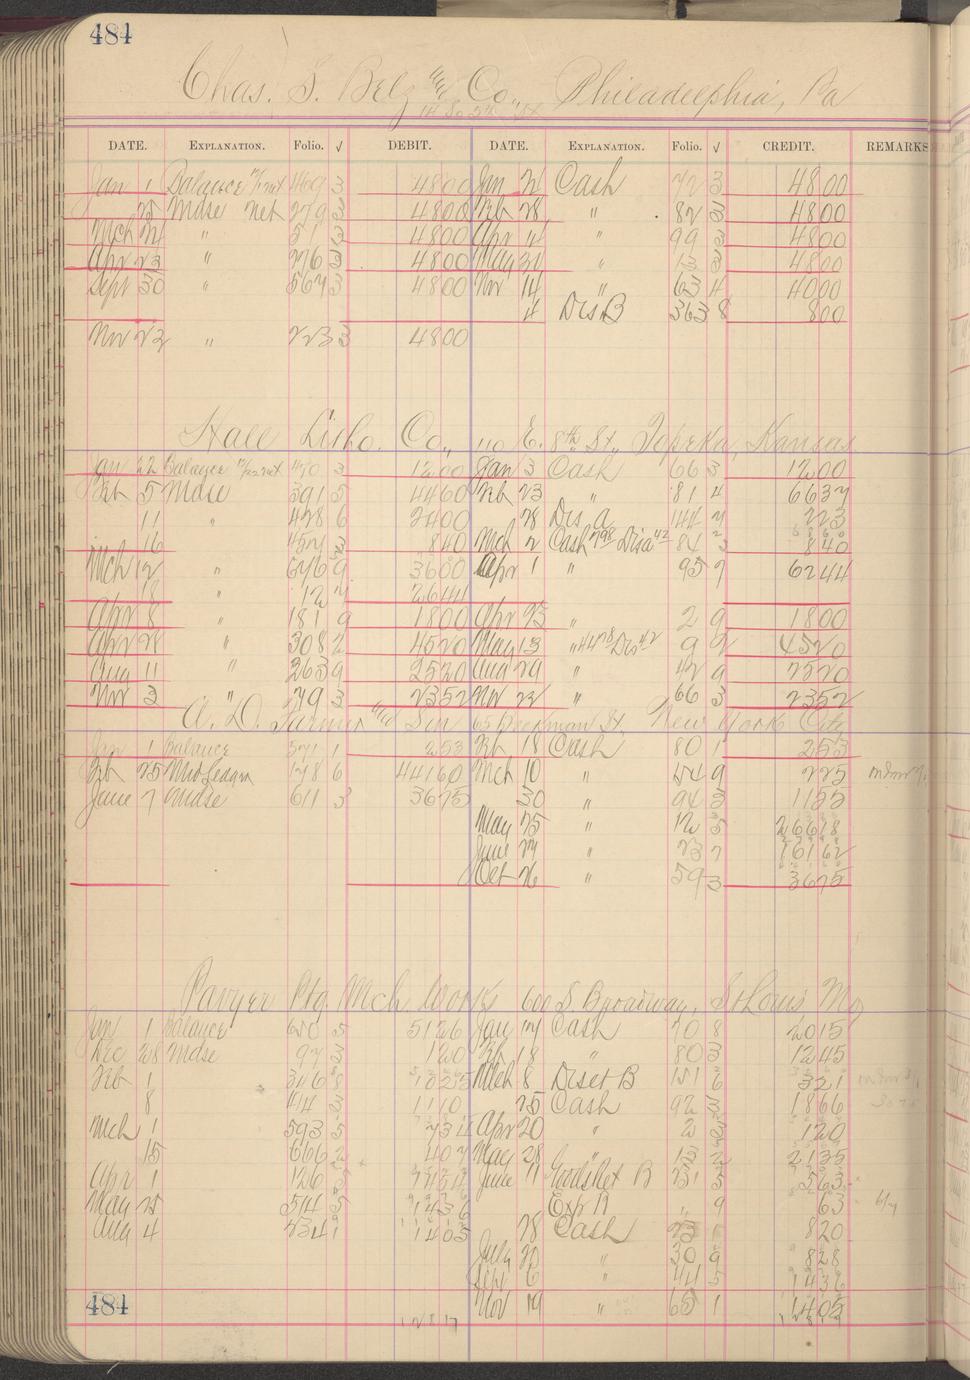 484
Chas. S. Belz Co., Philadelphia, Pa
DATE. EXPLANATION. Folio. √ DEBIT. DATE. EXPLANATION. Folio. √ CREDIT. REMARKS
Jan 1 Balance 469 3 4800 Jan Cash 72 3 4800
25 Mdse net 279 3 4800 Feb 28 " 82 3 4800
Mch 24 " 51 4800 Apr 4 " 99 3 4800
Apr 23 " 276 3 4800 May 31 " 13 3 4800
Sept 30 " 567 3 4800 Nov 14 " 63 4 4000
4 Dis B 363 8 800
Nov 23 " 223 3 4800
Hall Litho. Co., 110 E. 8th St., Topeka, Kansas
Jan 22 Balance 450 3 1200 Jan 3 Cash 66 3 1200
Feb 5 Mdse 391 5 4460 Feb 23 " 81 4 6637
11 " 428 6 2400 28 Dis A 144 7 223
16 457 3 840 Mch 2 Cash 798 Disc 42 84 3 840
Mch 12 " 646 9 3600 Apr 1 " 95 7 6244
18 " 12 7 2644
Apr 8 " 181 9 1800 Apr 23 " 2 9 1800
Apr 28 " 308 2 4520 May 13 " 4478 Dis 42 9 2 4520
Aug 11 " 263 9 2520 Aug 29 " 42 9 2520
Nov 3 " 79 3 2352 Nov 22 " 66 3 2352
A. D. Farmer Son 63 Beekman St., New York City
Jan 1 Balance 571 1 253 Feb 18 Cash 80 1 253
Feb 25 Mds Ledgr 178 6 44160 Mch 10 " 54 9 225
June 7 Mdse 611 3 3675 30 " 94 3 1155
May 25 " 12 5 26618
June 27 " 23 7 16162
Oct 26 " 59 3 3675
Ptg Mch Works 600 S Broadway, St Louis Mo
Jan 1 Balance 650 5 5126 Jan 17 Cash 70 8 2015
Dec 28 Mdse 97 3 120 Feb 18 " 80 3 1245
Feb 1 346 8 1325 Mch 8 Disct B 151 6 321
8 414 3 1110 25 Cash 92 3 1866
Mch 1 593 5 734 Apr 20 " 2 3 120
15 666 2 407 May 28 " 13 2 2135
Apr 1 126 5 June 11 B 31 3 563
May 25 514 5 1436 " 9 63
Aug 4 234 1 1405 28 Cash 23 1 820
July 20 " 30 9 828
Sept 6 " 44 5 1436
Nov 19 " 65 1 1405
484